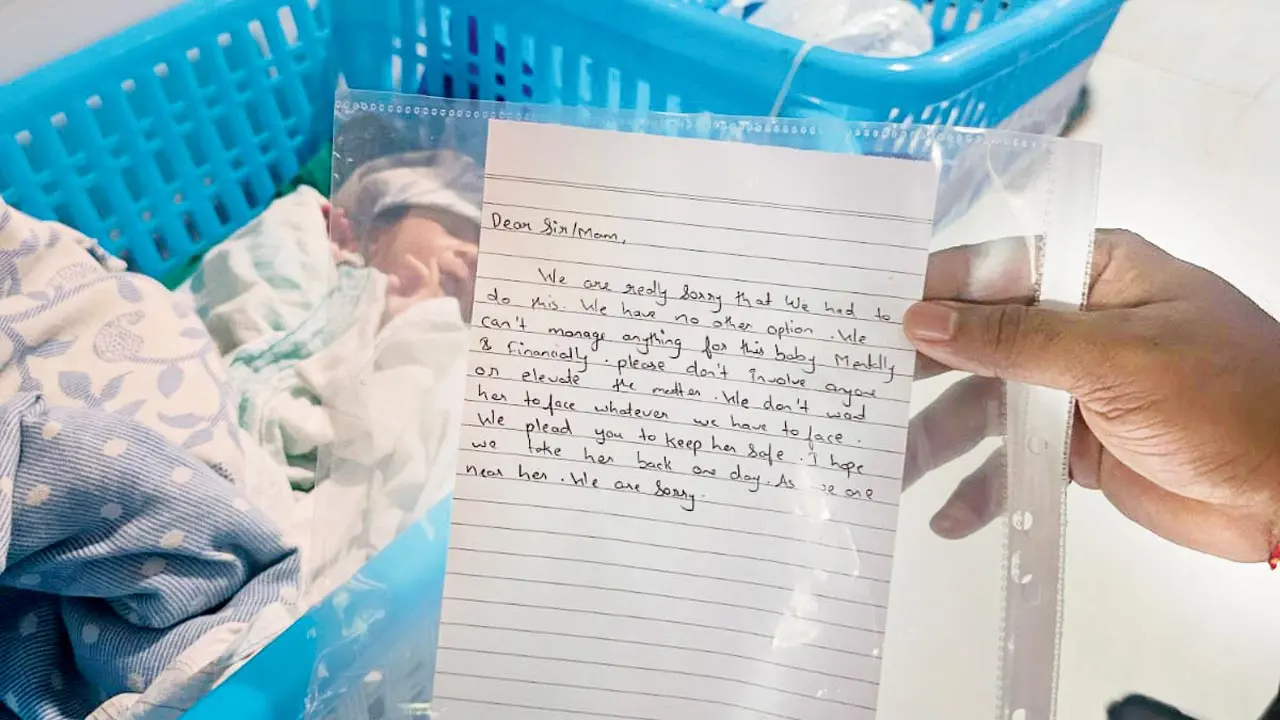 Dear Sir/Mam,
We are realy sorry that we had to
do this. We have no other option. We
can't manage anything for this baby Mentally
& Financially. please don't involve anyone
or elevate the matter. We don't wad
her to face whatever we have to face.
We plead you to keep her safe. I hope
we take her back one day. As we are
near her. We are sorry.